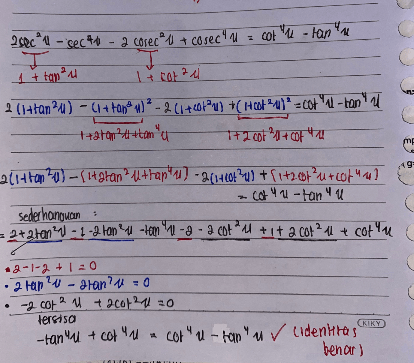 2sec²u - sec⁴u - 2 cosec²u + cosec⁴u = cot⁴u - tan⁴u
1 + tan²u 1 + cot²u
2 (1+tan²u) - (1+tan²u)² - 2(1+cot²u) + (1+cot²u)² = cot⁴u - tan⁴u
1+2tan²u+tan⁴u 1+2 cot²u + cot⁴u
2(1+tan²u) - (1+2tan²u+tan⁴u) - 2(1+cot²u) + (1+2cot²u+cot⁴u)
= cot⁴u - tan⁴u
sederhanakan :
= 2+2tan²u - 1 - 2tan²u - tan⁴u - 2 - 2 cot²u + 1 + 2 cot²u + cot⁴u
• 2-1-2+1 = 0
• 2tan²u - 2tan²u = 0
• -2cot²u + 2cot²u = 0
tersisa
KIKY
-tan⁴u + cot⁴u = cot⁴u - tan⁴u ✓ (identitas
benar)